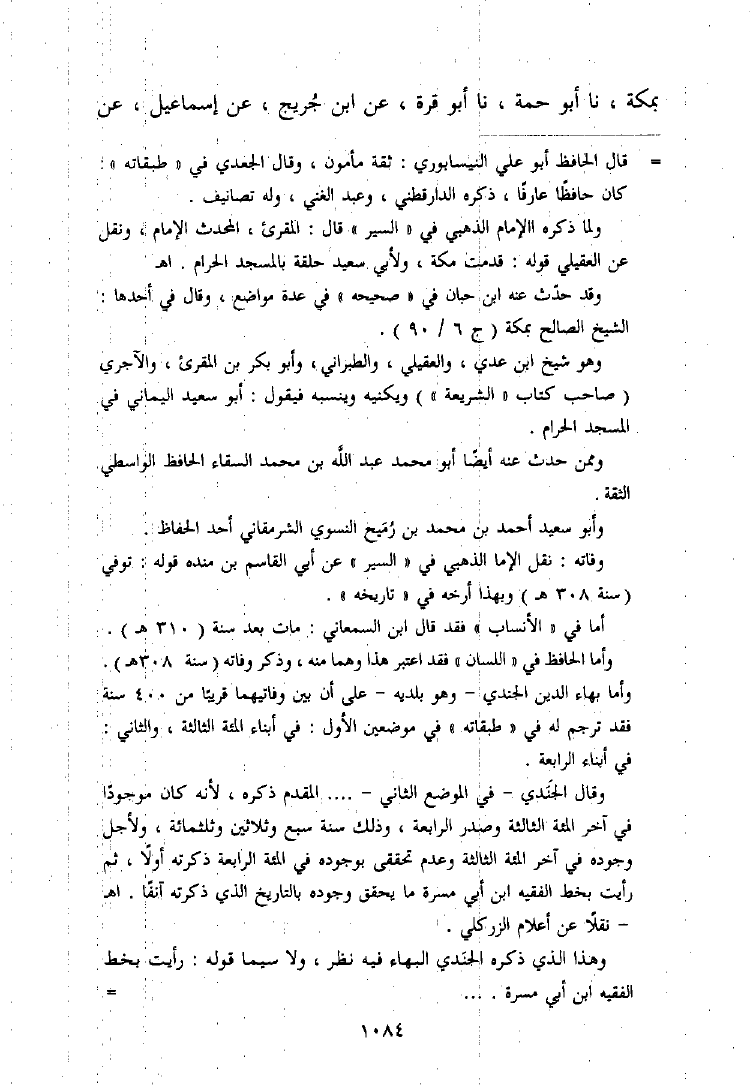 بمكة ، نا أبو حمة ، نا أبو قرة ، عن ابن جُريج ، عن إسماعيل ، عن
= قال الحافظ أبو علي النيسابوري : ثقة مأمون ، وقال الجعدي في « طبقاته » :
كان حافظًا عارفًا ، ذكره الدارقطني ، وعبد الغني ، وله تصانيف .
ولما ذكره االإمام الذهبي في « السير » قال : المقرئ ، المحدث الإمام ، ونقل
عن العقيلي قوله : قدمت مكة ، ولأبي سعيد حلقة بالمسجد الحرام . اهـ
وقد حدّث عنه ابن حبان في « صحيحه » في عدة مواضع ، وقال في أحدها :
الشيخ الصالح بمكة ( ج ٦ / ٩٠ ) .
وهو شيخ ابن عدي ، والعقيلي ، والطبراني ، وأبو بكر بن المقرئ ، والآجري
( صاحب كتاب « الشريعة » ) ويكنيه وينسبه فيقول : أبو سعيد اليماني في
المسجد الحرام .
وممن حدث عنه أيضًا أبو محمد عبد اللَّه بن محمد السقاء الحافظ الواسطي
الثقة .
وأبو سعيد أحمد بن محمد بن رُمَيح النسوي الشرمقاني أحد الحفاظ .
وفاته : نقل الإما الذهبي في « السير » عن أبي القاسم بن منده قوله : توفي
( سنة ٣٠٨ هـ ) وبهذا أرخه في « تاريخه » .
أما في « الأنساب » فقد قال ابن السمعاني : مات بعد سنة ( ٣١٠ هـ ) .
وأما الحافظ في « اللسان » فقد اعتبر هذا وهما منه ، وذكر وفاته ( سنة ٣٠٨هـ ) .
وأما بهاء الدين الجندي - وهو بلديه - على أن بين وفاتيهما قريبًا من ٤٠٠ سنة
فقد ترجم له في « طبقاته » في موضعين الأول : في أبناء المئة الثالثة ، والثاني :
في أبناء الرابعة .
وقال الجَنَدي - في الموضع الثاني - .... المقدم ذكره ، لأنه كان موجودًا
في آخر المئة الثالثة وصدر الرابعة ، وذلك سنة سبع وثلاثين وثلثمائة ، ولأجل
وجوده في آخر المئة الثالثة وعدم تحققى بوجوده في المئة الرابعة ذكرته أولًا ، ثم
رأيت بخط الفقيه ابن أبي مسرة ما يحقق وجوده بالتاريخ الذي ذكرته آنفًا . اهـ
- نقلًا عن أعلام الزركلي .
وهذا الذي ذكره الجَندي البهاء فيه نظر ، ولا سيما قوله : رأيت بخط
الفقيه ابن أبي مسرة . ... =
١٠٨٤